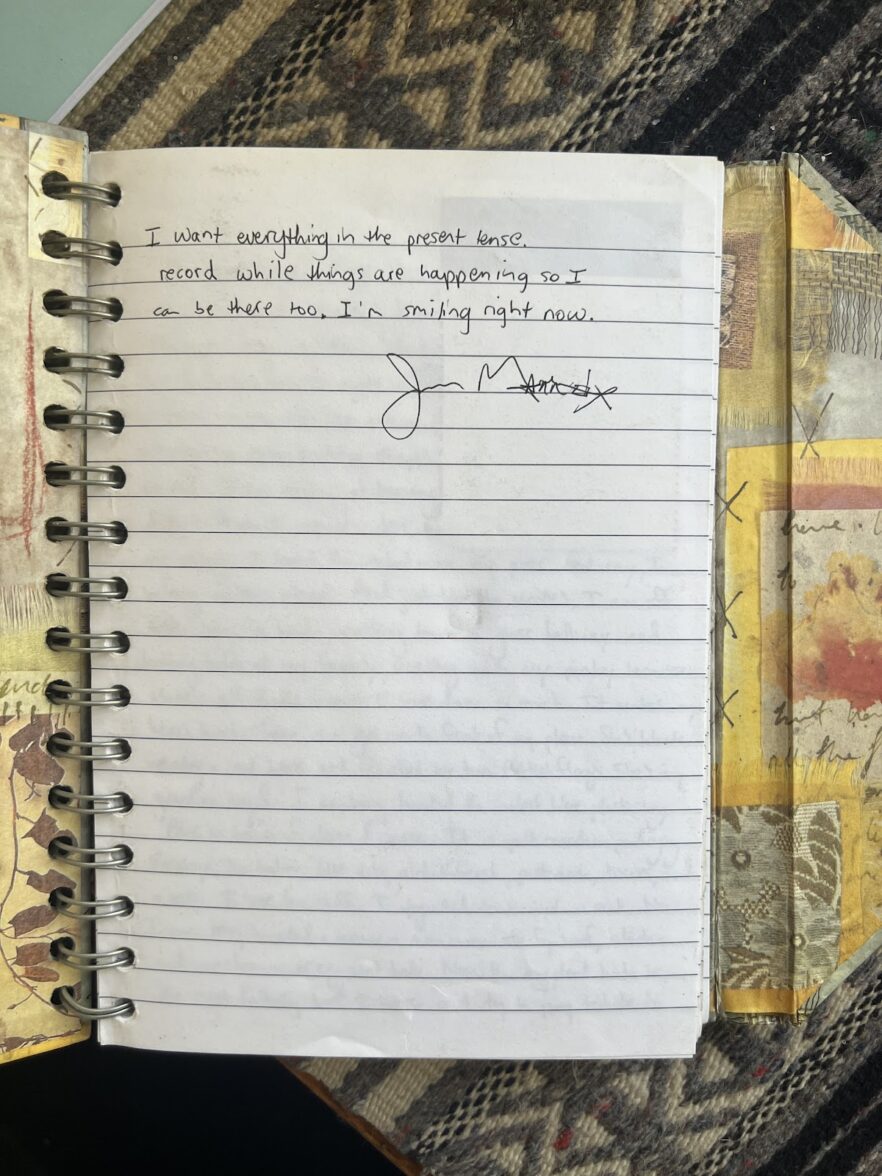 I want everything in the present tense.
record while things are happening so I
can be there too. I'm smiling right now.